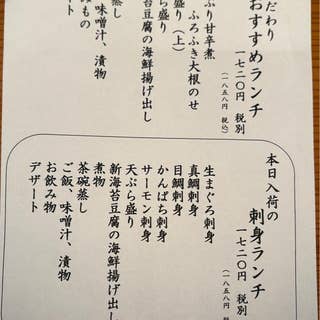 だわり
おすすめランチ
一七二〇円 税別
（一八五八円 税込）
ぶり甘辛煮
ふろふき大根のせ
盛り（上）
ら盛り
苔豆腐の海鮮揚げ出し
蒸し
味噌汁、漬物
みもの
ート
本日入荷の
刺身ランチ
一七二〇円 税別
（一八五八円
生まぐろ刺身
真鯛刺身
目鯛刺身
かんぱち刺身
サーモン刺身
天ぷら盛り
新海苔豆腐の海鮮揚げ出し
煮物
茶碗蒸し
ご飯、味噌汁、漬物
お飲み物
デザート